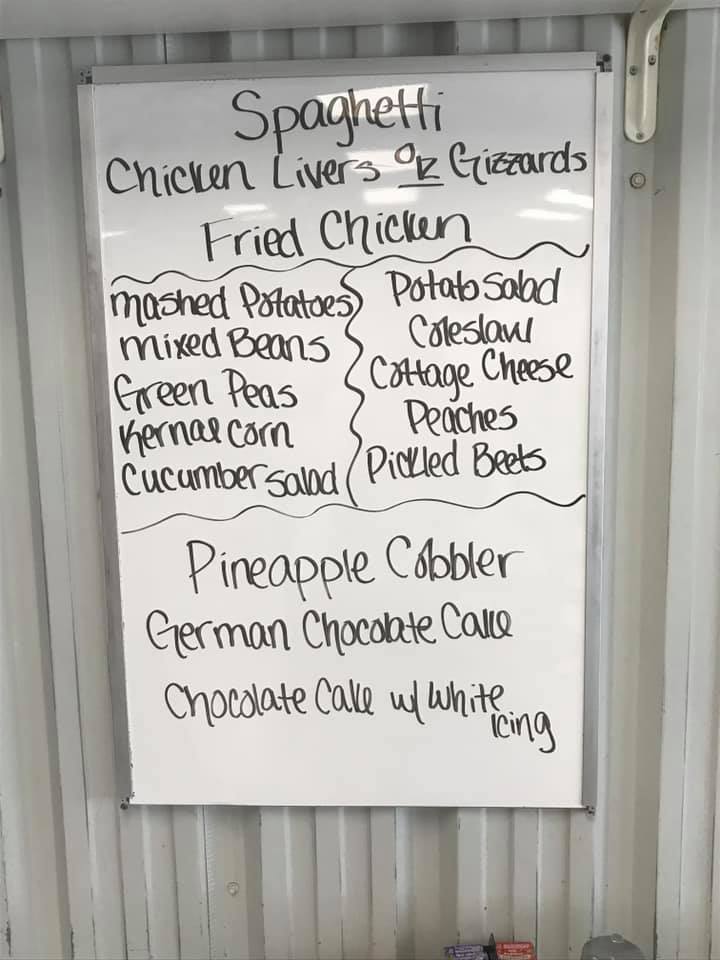 Spaghetti
Chicken Livers OR Gizzards
Fried Chicken
Mashed Potatoes
Mixed Beans
Green Peas
Kernal Corn
Cucumber Salad
Potato Salad
Coleslaw
Cottage Cheese
Peaches
Pickled Beets
Pineapple Cobbler
German Chocolate Cake
Chocolate Cake w/ White
Icing